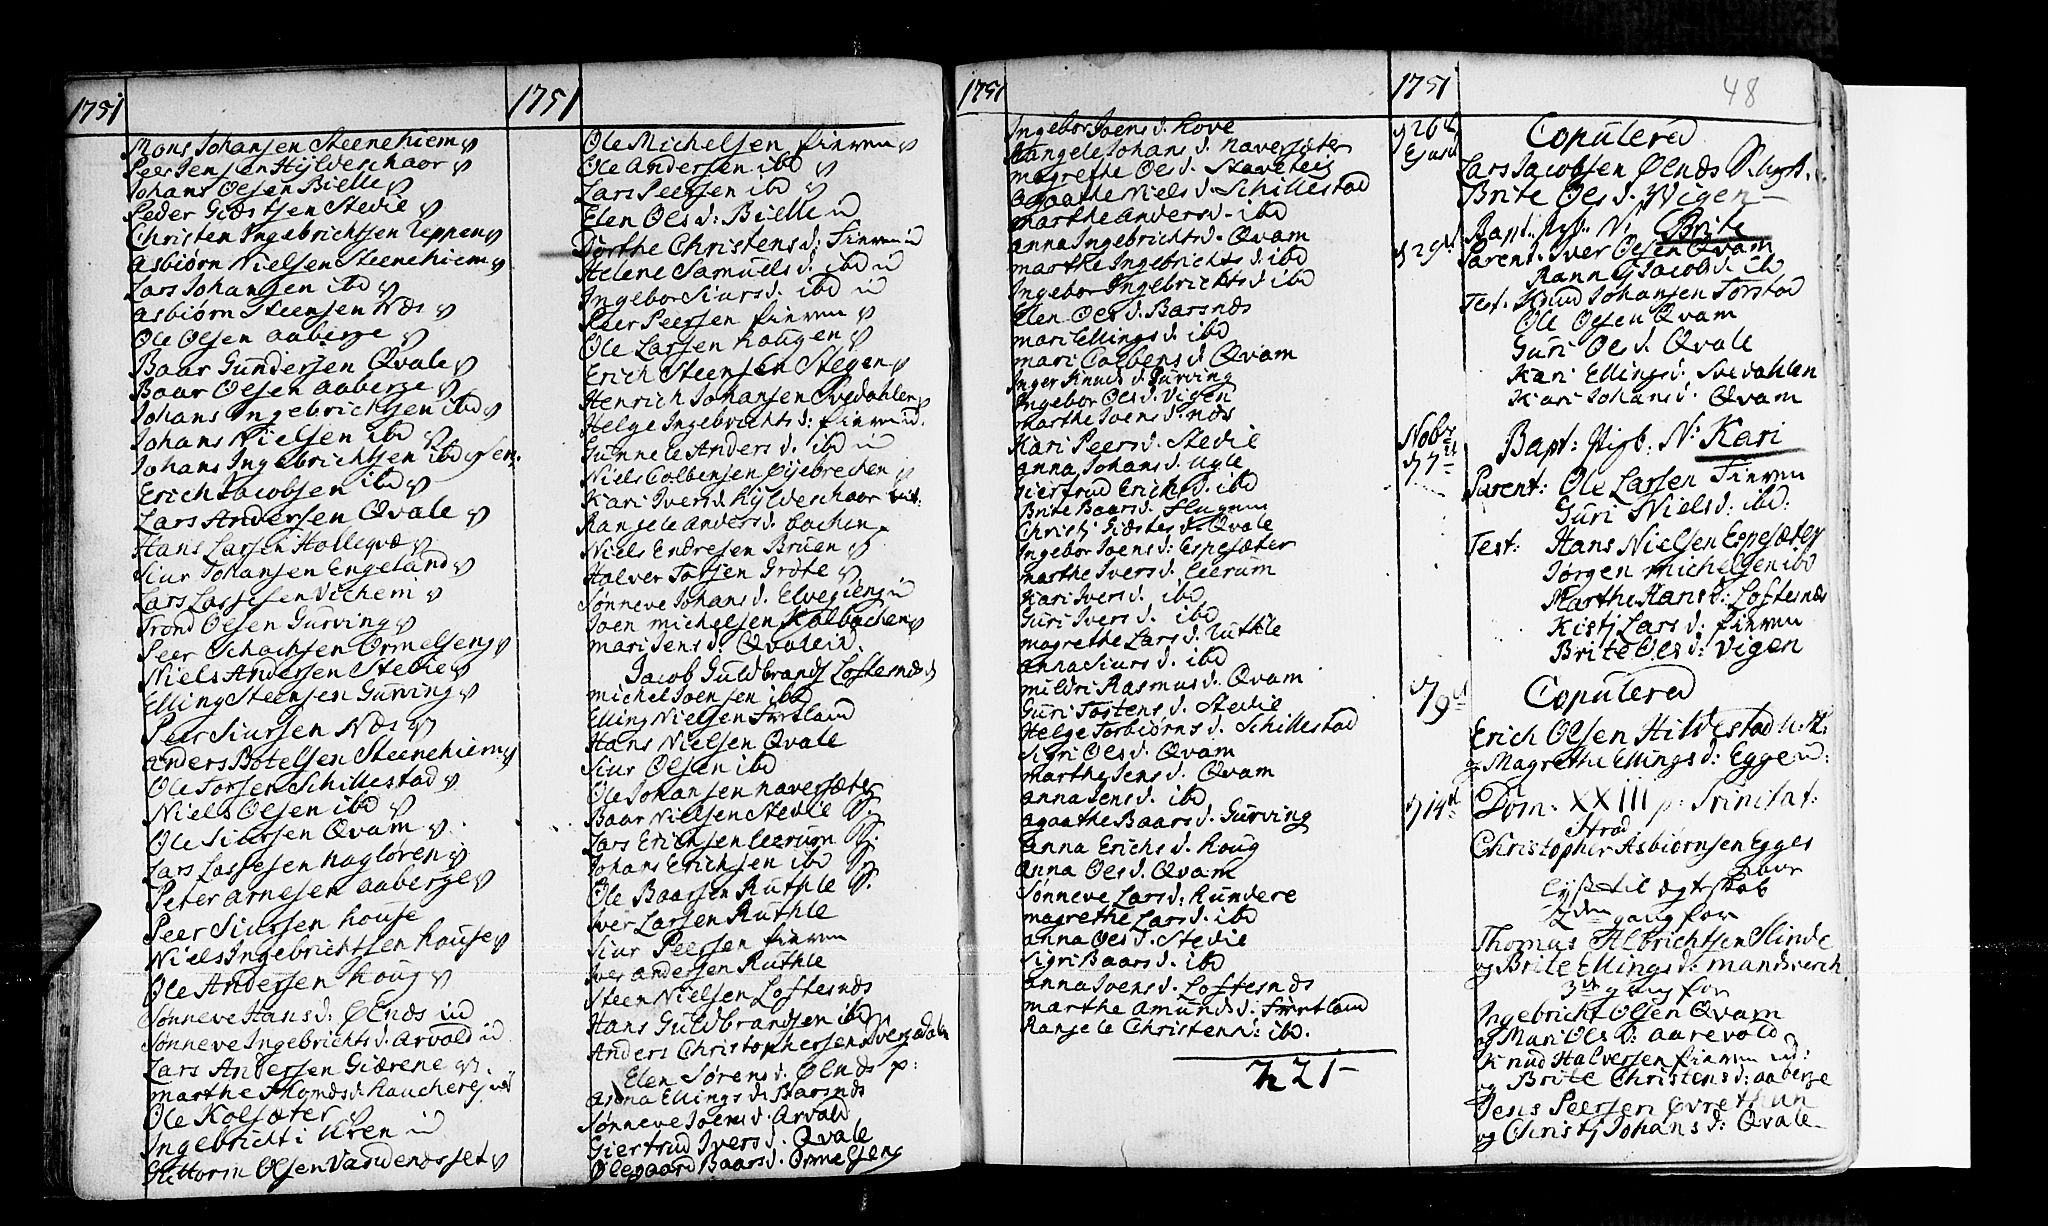 1751
Mons Johansen Steenehiem
Peer Jensen Hÿldeschaor
Johans Olsen Bielle
Peder Giæstsen Stedie
Christen Ingebrichtsen Leppen
Asbiørn Nielsen Steenehiem
Lars Johansen ibd
Asbiørn Steensen Næs
Ole Olsen Aaberge
Baar Gundersen Qvale
Baar Olsen Aaberge
Johans Ingebrichtsen ibd
Johans Nielsen ibd
Johans Ingebrichtsen ibd
Erich Jacobsen ibd
Lars Andersen Qvale
Hans Larsen Holleqvæ
Siur Johansen Engeland
Lars Lassesen Vichem
Trond Olsen Gurving
Peer Schachsen Ormelseng
Niels Andersen Stedie
Elling Steensen Gurving
Peer Siursen Næs
Anders Botelsen Steenehiem
Ole Torsen Schillestad
Niels Olsen ibd
Ole Siursen Qvam
Lars Lassesen Hagløren
Peter Arnesen Aaberge
Peer Siursen House
Niels Ingebrichtsen House
Ole Andersen Houg
Sønneve Hans d: Ølnæs
Sønneve Ingebrichts d. Arvold
Lars Andersen Giærene
Marthe Thomæ d. Rauchereg
Ole Kolsæter
Ingebricht i Kren
Guttorm Olsen Vandenesset
1751
Ole Michelsen Finven
Ole Andersen ibd
Lars Peersen ibd
Elen Ols d: Bielle
Dorthe Christens d: Finven
Helene Samuels d. ibd
Ingebor Siurs d. ibd
Peer Peersen Finven
Ole Larsen Hougen
Erich Steensen Stegen
Henrich Johansen Svedahlen
Helge Ingebrichts d: Finven
Gunnele Anders d. ibd
Niels Colbensen Eijebrechen
Kari Ivers d. Hÿldeschaor
Rangele Anders d. Bachen
Niels Endresen Bruen
Halver Torsen Grøte
Sønneve Johans d. Elvegieng
Joen Michelsen Kalbachen
Mari Jens d. Qvale
Jacob Guldbrands Loftesnæs
Michel Joensen ibd
Elling Nielsen Furtland
Hans Nielsen Qvale
Siur Olsen ibd
Ole Johansen Haversæter
Baar Nielsen Stedie
Lars Erichsen Leerum
Johans Erichsen ibd
Ole Baarsen Ruthle
Iver Larsen Ruthle
Siur Peersen Finven
Iver Andersen Ruthle
Steen Nielsen Loftesnæs
Hans Guldbrandsen ibd
Anders Christophersen Dvergedalen
Elen Sørens d. Ølnæs p:
Anna Ellings d. Barsnæs
Sønneve Joens d. Arvold
Giertrud Ivers d. Qvale
Olegaard Baars d. Ormelseng
1751
Ingebor Joens d. Hove
Rangele Johans d. Haversæter
Magrethe Ols d. Staveteig
Agaathe Niels d. Schillestad
Marthe Anders d. ibd
Anna Ingebrichts d. Qvam
Marthe Ingebrichts d. ibd
Ingebor Ingebrichts d. ibd
Elen Ols d. Barsnæs
Mari Ellings d. ibd
Mari Colbens d. Qvam
Inger Knuds d. Gurving
Ingebor Ols d. Vigen
Marthe Joens d. Næs
Kari Peers d. Stedie
Anna Johans d. Ugle
Giertrud Erichs d. ibd
Brite Baars d. Flugum
Christj Giæstes d. Qvale
Ingebor Joens d: Espesæter
Marthe Ivers d. Leerum
Kari Ivers d. ibd
Guri Ivers d. ibd
Magrethe Lars d. Ruthle
Anna Siurs d. ibd
Mildri Rasmus d. Qvam
Guri Tostens d. Stedie
Helge Torbiørns d. Schillestad
Sigri Ols d. Qvam
Marthe Jens d. Qvam
Anna Jens d. ibd
Agaathe Baars d. Gurving
Anna Erichs d. Houg
Anna Ols d. Qvam
Sønneve Lars d: Rundere
Magrethe Lars d. ibd
Anna Ols d. Stedie
Sigri Baars d. ibd
Anna Joens d. Loftesnæs
Marthe Amunds d: Furtland
Rangele Christenn: ibd.
221
1751
48
d 26
Copulered
Lars Jacobsen Ølnæs
Brite Ols d. Wigen
d 29
Bapt: N: Brite
Parent: Iver Olsen Qvam
Rannj Jacobs d. ib
Test: Knud Johansen Torstad
Ole Olsen Qvam
Guri Ols d. Qvale
Kari Ellings d: Svedahlen
Kari Johans d. Qvam
Nobr
d 7
Bapt: N: Kari
Parent: Ole Larsen Finven
Guri Niels d: ibd:
Test: Hans Nielsen Espesæter
Jørgen Michelsen ibd
Marthe Hans d: Loftesnæs
Kistj Lars d: Finven
Brite Ols d: Vigen
d 9
Copulered
Erich Olsen Hildestad
og Magrethe Ellings d: Eggen
d 14
Dom: XXIII p: Trinitat:
Strad
Christopher Asbiørnsen Egges
Lÿst til ægteskab
2den gang for
Thomas Albrichtsen Slinde
og Brite Ellings d: Mandsverch
3de gang for
Ingebricht Olsen Qvam
og Mari Ols d: Aarevold
Knud Halversen Finven
og Brite Christens d: Aaberge
Jens Peersen Øvrethun
og Christj Johans d: Qvale